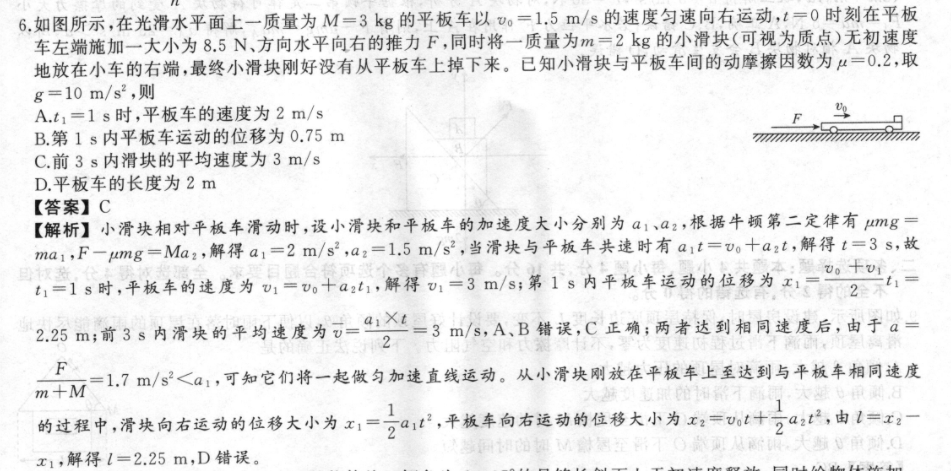 6.如图所示,在光滑水平面上一质量为M=3 kg的平板车以v₀=1.5 m/s的速度匀速向右运动,t=0时刻在平板
车左端施加一大小为8.5 N、方向水平向右的推力F,同时将一质量为m=2 kg的小滑块(可视为质点)无初速度
地放在小车的右端,最终小滑块刚好没有从平板车上掉下来。已知小滑块与平板车间的动摩擦因数为μ=0.2,取
g=10 m/s²,则
A.t₁=1 s时,平板车的速度为2 m/s
B.第1 s内平板车运动的位移为0.75 m
C.前3 s内滑块的平均速度为3 m/s
D.平板车的长度为2 m
F
v₀
【答案】C
【解析】小滑块相对平板车滑动时,设小滑块和平板车的加速度大小分别为a₁、a₂,根据牛顿第二定律有μmg=
ma₁,F-μmg=Ma₂,解得a₁=2 m/s²,a₂=1.5 m/s²,当滑块与平板车共速时有a₁t=v₀+a₂t,解得t=3 s,故
t₁=1 s时,平板车的速度为v₁=v₀+a₂t₁,解得v₁=3 m/s;第1 s内平板车运动的位移为x₁=(v₀+v₁)/2 t₁=
2.25 m;前3 s内滑块的平均速度为v̄=(a₁×t)/2=3 m/s,A、B错误,C正确;两者达到相同速度后,由于a=
F/(m+M)=1.7 m/s²<a₁,可知它们将一起做匀加速直线运动。从小滑块刚放在平板车上至达到与平板车相同速度
的过程中,滑块向右运动的位移大小为x₁=1/2 a₁t²,平板车向右运动的位移大小为x₂=v₀t+1/2 a₂t²,由l=x₂-
x₁,解得l=2.25 m,D错误。